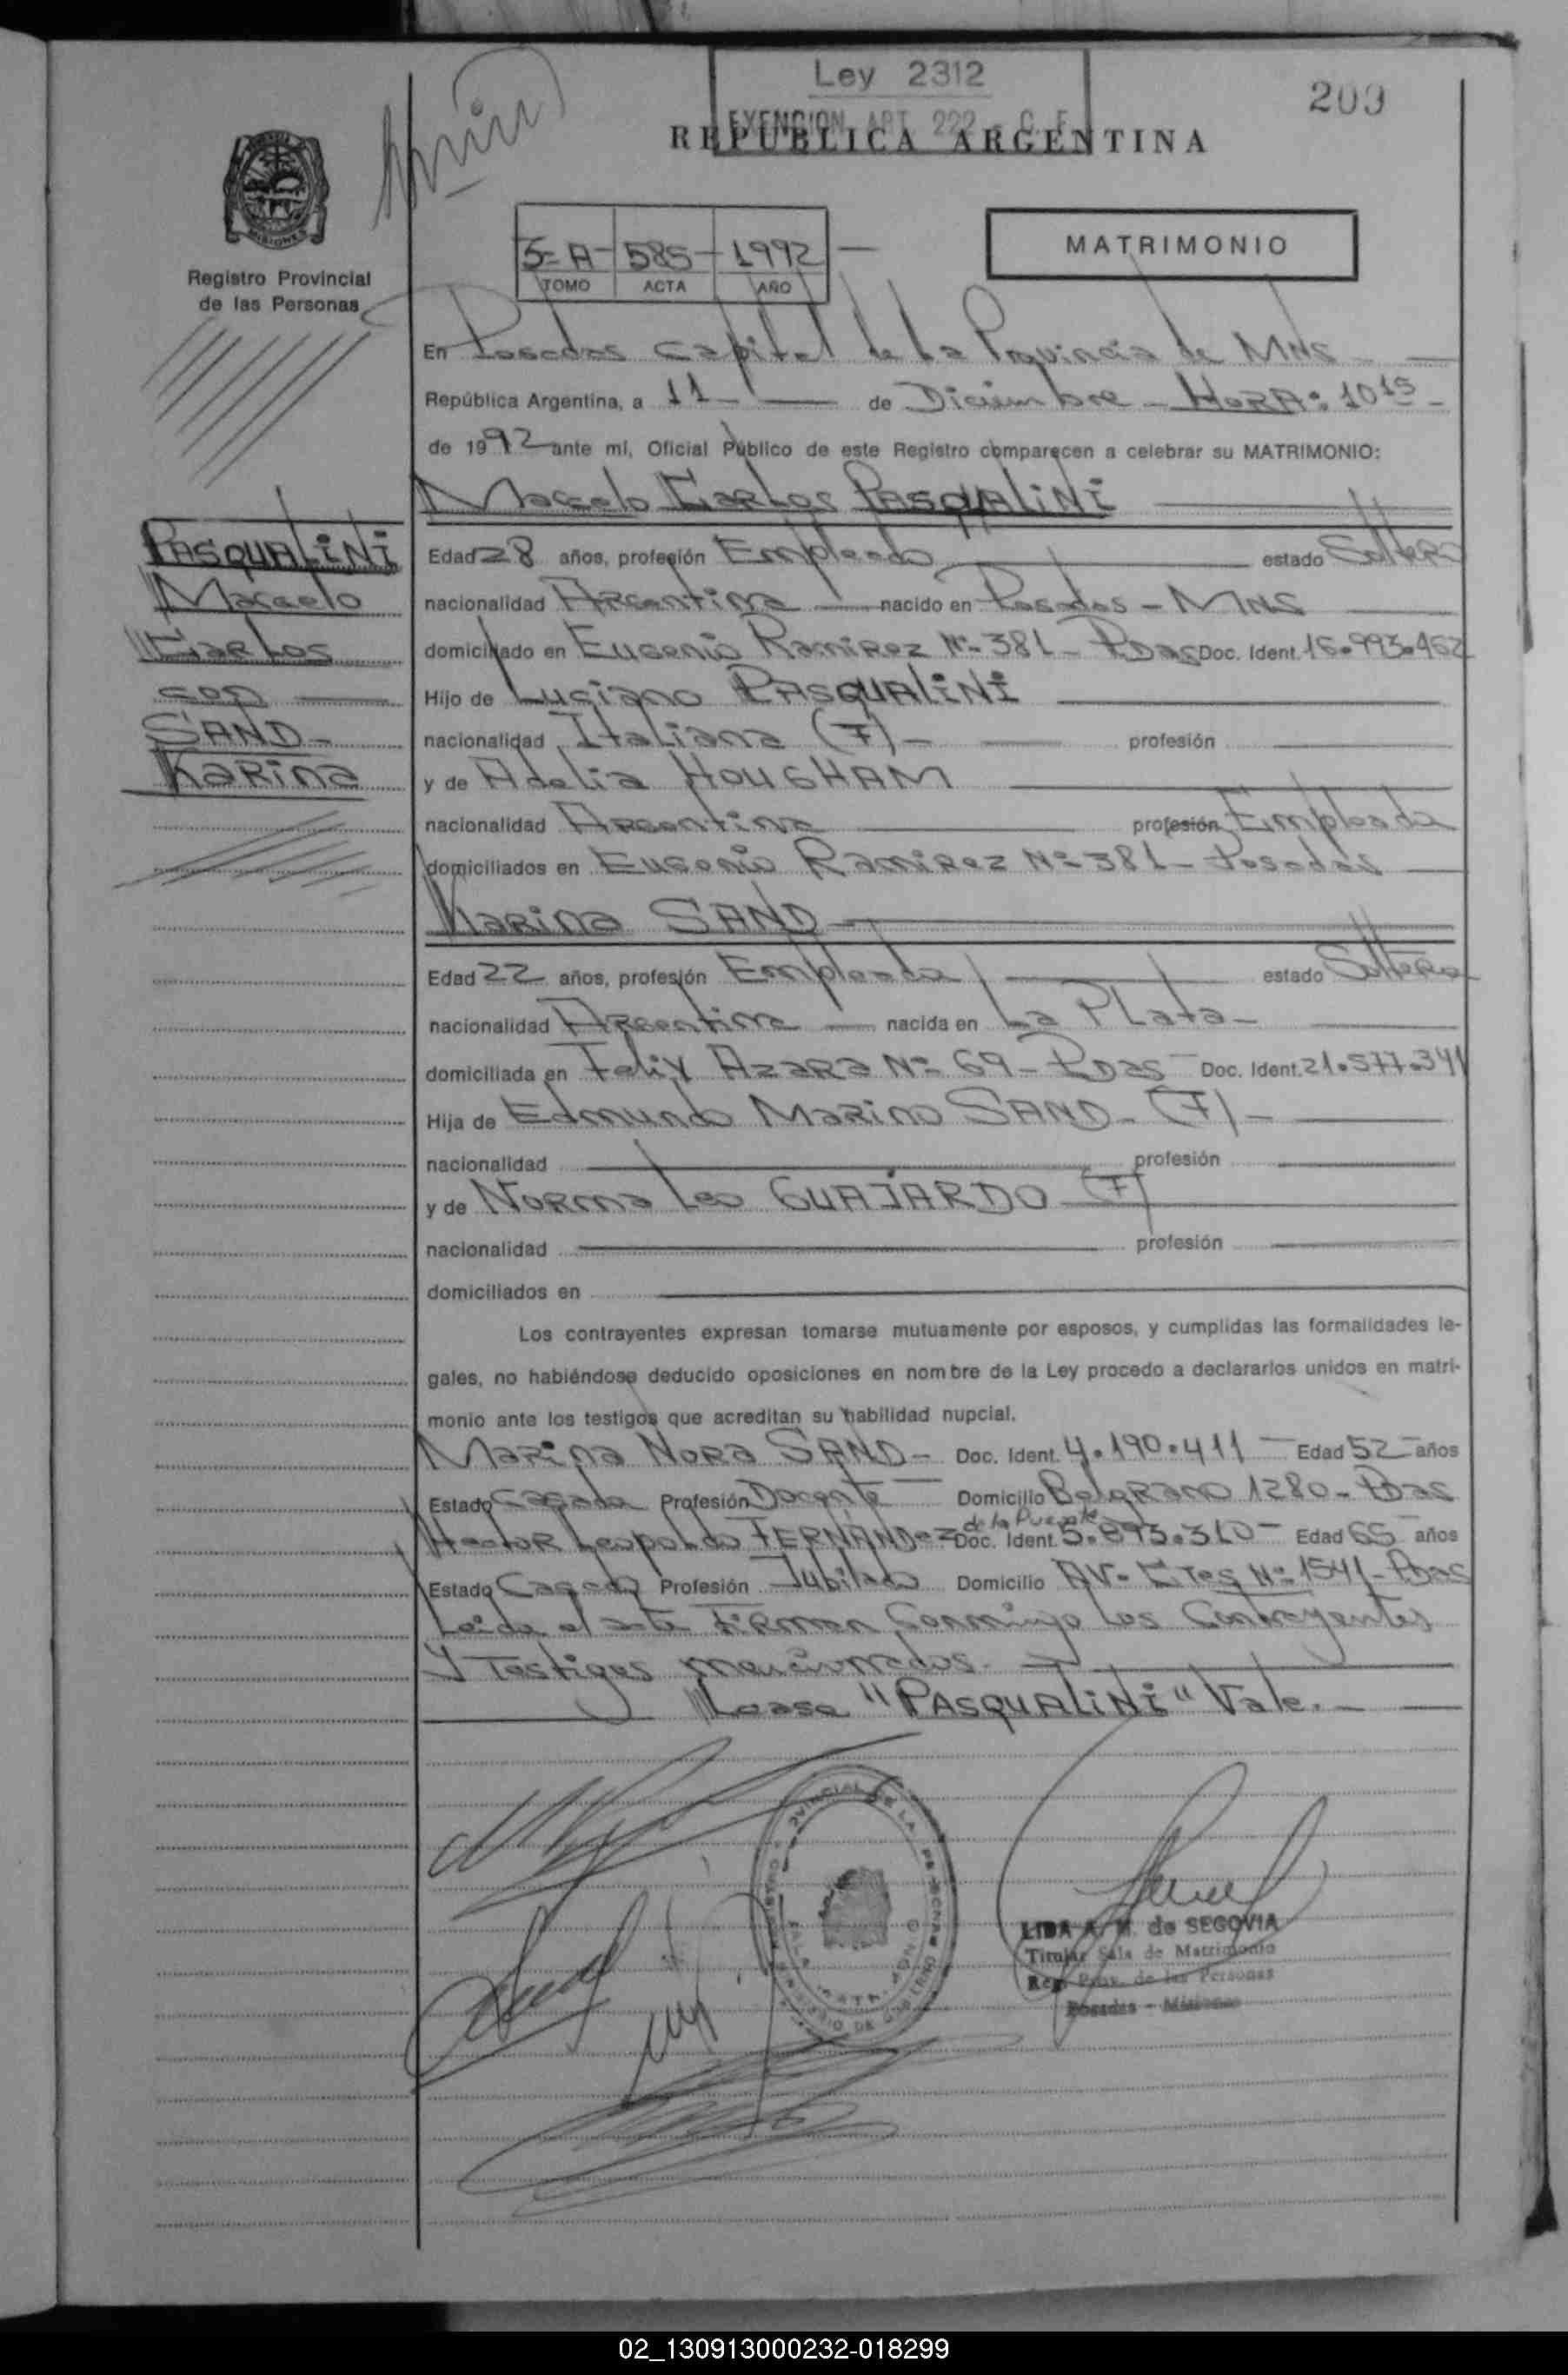 Ley 2312
EXENCION ART 222 - C. F.
209
REPUBLICA ARGENTINA
MISIONES
Registro Provincial
de las Personas
5=A- 585- 1992
TOMO ACTA AÑO
MATRIMONIO
En Posadas Capital de La Provincia de MNS
República Argentina, a 11 de Diciembre - HORA: 10 15 -
de 1992 ante mí, Oficial Público de este Registro comparecen a celebrar su MATRIMONIO:
Marcelo Carlos PASQALINI
PASQUALINI
Marcelo
Carlos
con
SAND-
Karina
Edad 28 años, profesión Empleado estado Soltero
nacionalidad Argentina nacido en Posadas - MNS
domiciliado en Eugenio Ramirez Nº 381 - PDas Doc. Ident. 16.993.462
Hijo de Luciano PASQUALINI
nacionalidad Italiana (F)- profesión
y de Adelia HOUGHAM
nacionalidad Argentina profesión Empleada
domiciliados en Eugenio Ramirez Nº 381 - Posadas
Karina SAND
Edad 22 años, profesión Empleada estado Soltera
nacionalidad Argentina nacida en La PLata-
domiciliada en Felix Azara Nº 69 - PDas Doc. Ident. 21.577.341
Hija de Edmundo Marino SAND - (F)-
nacionalidad profesión
y de Norma Leo GUAJARDO (F)
nacionalidad profesión
domiciliados en
Los contrayentes expresan tomarse mutuamente por esposos, y cumplidas las formalidades le-
gales, no habiéndose deducido oposiciones en nombre de la Ley procedo a declararlos unidos en matri-
monio ante los testigos que acreditan su habilidad nupcial.
Marina Nora SAND - Doc. Ident. 4.190.411 Edad 52 años
Estado Casada Profesión Docente Domicilio Belgrano 1280 - PDas
de la Puente
Hector Leopoldo FERNANDez Doc. Ident. 5.893.310 Edad 65 años
Estado Casado Profesión Jubilado Domicilio AV. Nº 1541 - PDas
Leida el acta Firman Conmigo Los Contrayentes
Y Testigos mencionados.
Lease "PASQUALINI" Vale.-
LIDA A. M. de SEGOVIA
Titular Sala de Matrimonio
Reg. Prov. de las Personas
Posadas - Misiones
02_130913000232-018299